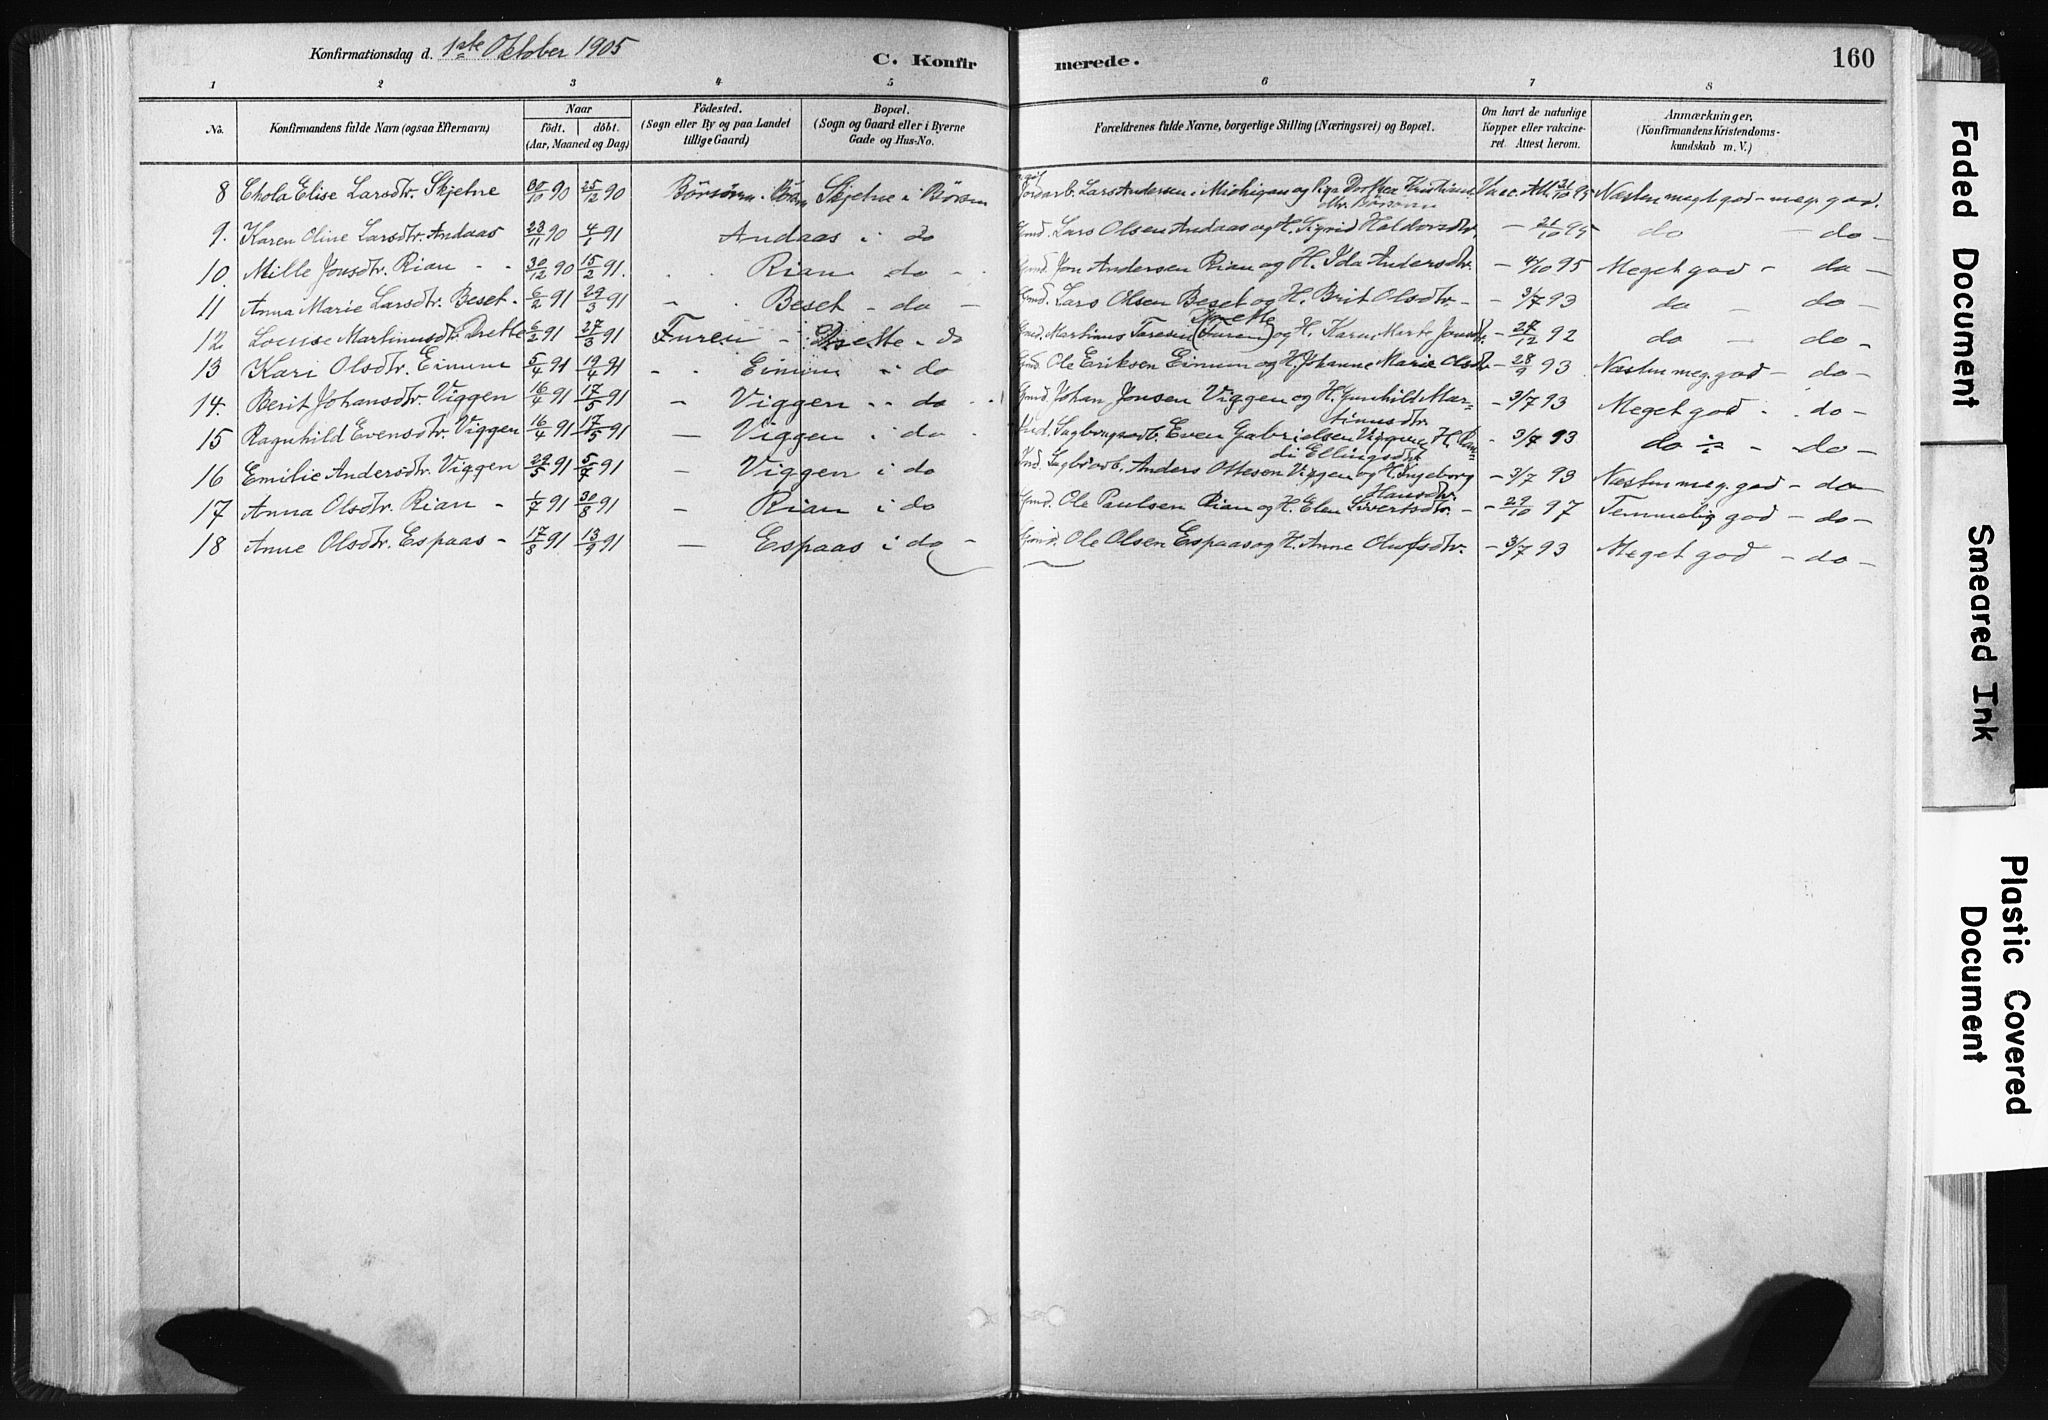 Konfirmationsdag d. 1ste Oktober 1905
C. Konfirmerede. 160
1 2 3 4 5 6 7 8
No. Konfirmandens fulde Navn (ogsaa Efternavn) Naar født. døbt. (Aar, Maaned og Dag) Fødested. (Sogn eller By og paa Landet tillige Gaard) Bopæl. (Sogn og Gaard eller i Byerne Gade og Hus-No. Forældrenes fulde Navne, borgerlige Stilling (Næringsvei) og Bopæl. Om havt de naturlige Kopper eller vakcineret. Attest herom. Anmærkninger. (Konfirmandens Kristendomskundskab m. V.)
8 Elise Larsdtr. Skjetne 30/10 90 25/12 90 Børsøren. Børsen Skjetne i Børsen Lars Andersen i Michigan og Pige Dorthea Kristians dtr. Børsøren Vacc. Att. 31/10 95 Næsten meget god - meg. god.
9. Karen Oline Larsdtr. Andaas 23/11 90 4/1 91 Andaas i do Gmd. Lars Olsen Andaas og H. Sigrid Haldorsdtr. - 21/10 95 do - do -
10. Mille Jonsdtr. Rian - - 30/12 90 15/2 91. - - Rian do - Gmd. Jon Andersen Rian og H. Ida Andersdtr. - 4/10 95 Meget god - do -
11 Anna Marie Larsdtr. Beset - 6/2 91 29/3 91 - - Beset - do - Gmd. Lars Olsen Beset og H. Brit Olsdtr - - 3/7 93 do - do -
12 Louise Martinusdtr. Drette 6/2 91 27/3 91 Furen - Drette - do Gmd. Martinus Drette (Furen) og H. Karen Marte Jonsdtr. - 27/12 92 do - do -
13 Kari Olsdtr. Eimun 5/4 91 19/4 91 - - Eimun - i do Gmd. Ole Eriksen Eimun og H. Johanne Marie Olsdtr - 28/9 93 Næsten meg. god - do -
14. Berit Johansdtr Viggen 16/4 91 17/5 91 - Viggen - - do - - Gmd. Johan Jonsen Viggen og H. Gunhild Martinusdtr - 3/7 93 Meget god - - do -
15 Ragnhild Evensdtr. Viggen 16/4 91 17/5 91 - Viggen i do - Even Gabrielsen Viggen H. Randi Ellingsdtr - 3/7 93 do ÷ - do -
16 Emilie Andersdtr. Viggen 29/5 91 5/7 91 - Viggen i do Anders Ottesen Viggen og H. Ingeborg Hansdtr. - 3/7 93 Næsten meg. god - do
17 Anna Olsdtr. Rian - 1/7 91 30/8 91 - Rian i do Gmd. Ole Paulsen Rian og H. Elen Sivertsdtr. - - 29/10 97 Temmelig god - do -
18 Anne Olsdtr. Espaas - 17/8 91 13/9 91 - Espaas i do - Gmd. Ole Olsen Espaas og H. Anne Olufsdtr. - 3/7 93 Meget god - do -
Faded Document
Smeared Ink
Plastic Covered
Document